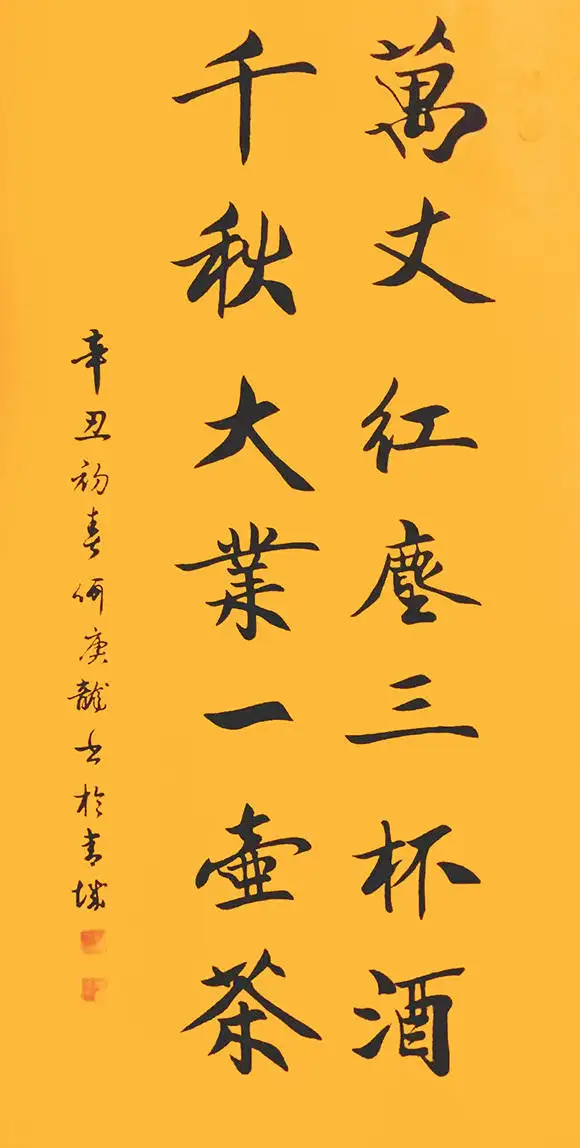 萬丈紅塵三杯酒
千秋大業一壺茶
辛丑初春何庚龍书於青城